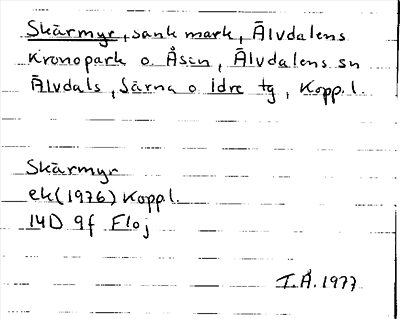 Skärmyr, sank mark, Älvdalens
Kronopark o. Åsen, Älvdalens sn
Älvdals, Särna o Idre tg, Kopp.l.
Skärmyr
ek(1976) Koppl.
14D 9f Floj
T.Å. 1977